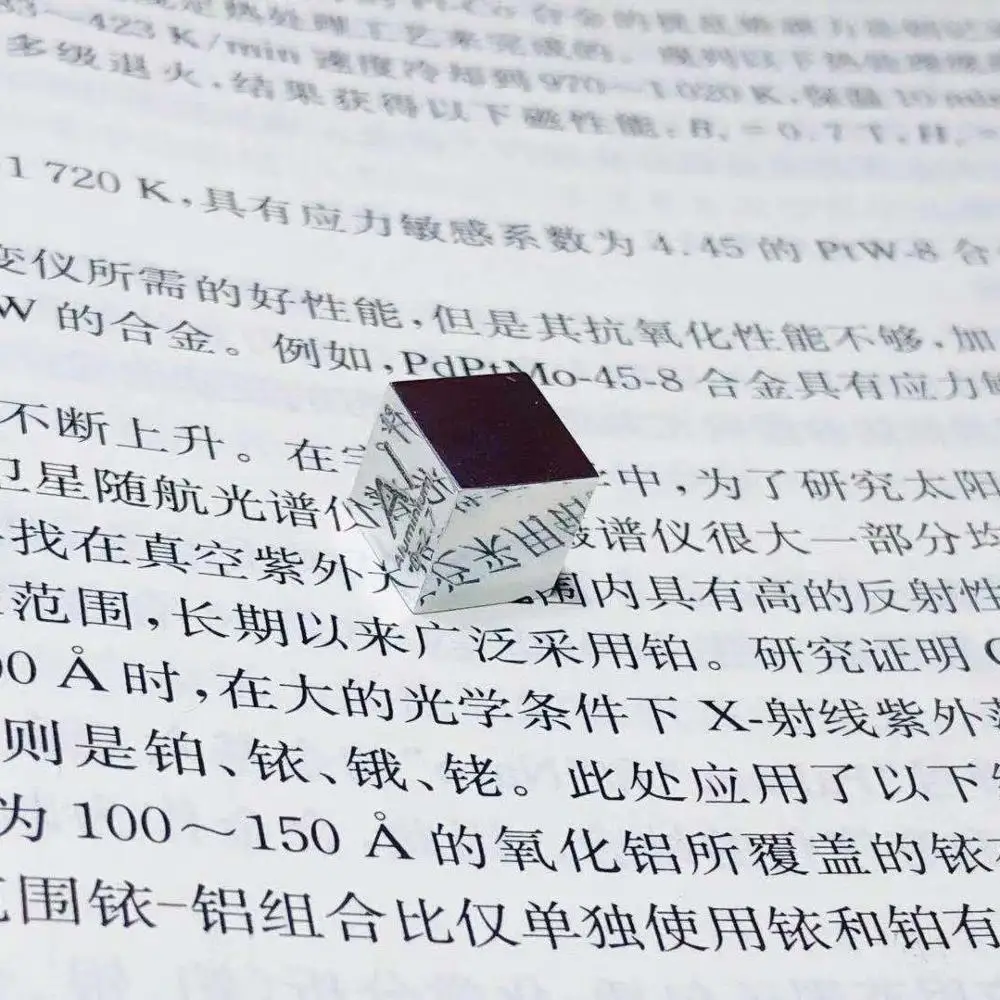 423 K/min 速度冷却到 970~1 020 K,保温 10 min
多级退火,结果获得以下磁性能:Bᵣ=0.7 T,H
1 720 K,具有应力敏感系数为 4.45 的 PtW-8 合
变仪所需的好性能,但是其抗氧化性能不够,加
W 的合金。例如,PdPtMo-45-8 合金具有应力敏
不断上升。在 中,为了研究太阳
卫星随航光谱仪 谱仪很大一部分均
找在真空紫外 围内具有高的反射性
范围,长期以来广泛采用铂。研究证明
0 Å 时,在大的光学条件下 X-射线紫外
则是铂、铱、锇、铑。此处应用了以下
为 100~150 Å 的氧化铝所覆盖的铱
范围铱-铝组合比仅单独使用铱和铂有
Aluminium